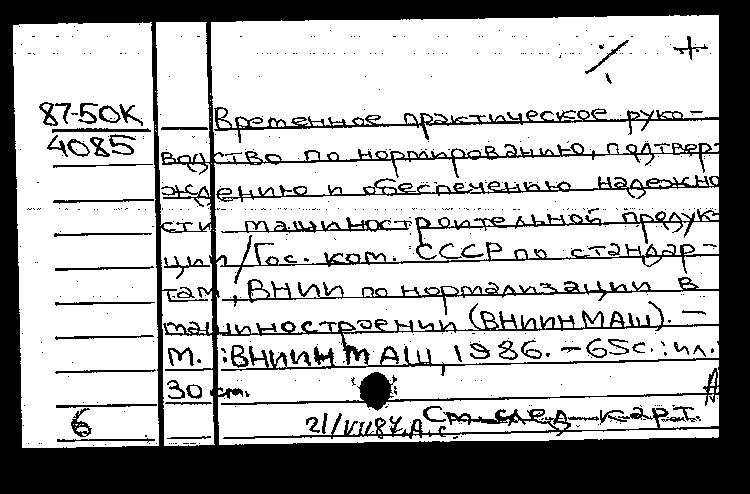 87-50К
4085
Временное практическое руко-
водство по нормированию, подтвер-
ждению и обеспечению надежно
сти машиностроительной продук-
ции / Гос. ком. СССР по стандар-
там, ВНИИ по нормализации в
машиностроении (ВНИИНМАШ). -
М. : ВНИИНМАШ, 1986. - 65 с. : ил.
30 см.
См. след. карт.
6
21/VII 87. А. с.